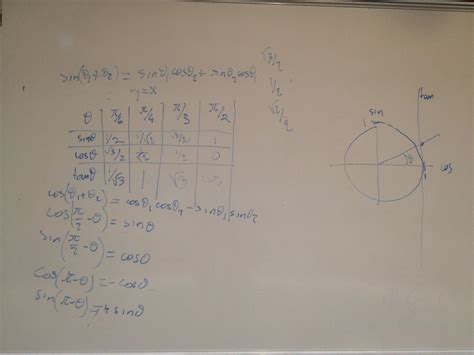 sin(θ₁+θ₂) = sinθ₁cosθ₂ + sinθ₂cosθ₁
y=x
θ π/6 π/4 π/3 π/2
sinθ 1/2 1/√2 √3/2 1
cosθ √3/2 1/2 0
tanθ 1/√3 1 √3
cos(θ₁+θ₂) = cosθ₁cosθ₂ - sinθ₁sinθ₂
cos(π/2-θ) = sinθ
sin(π/2-θ) = cosθ
cos(π-θ) = -cosθ
sin(π-θ) = + sinθ
√3/2
1/2
√2/2
sin
tan
1
θ
cos